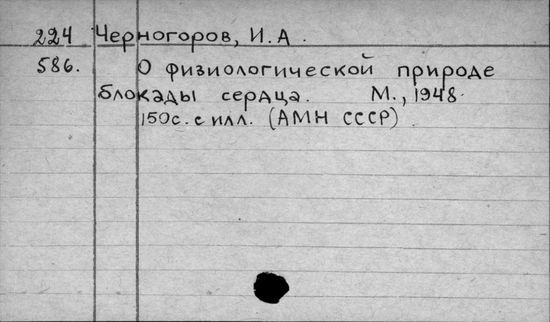 224 Черногоров, И.А.
586. О физиологической природе
блокады сердца. М., 1948.
150с. с илл. (АМН СССР).